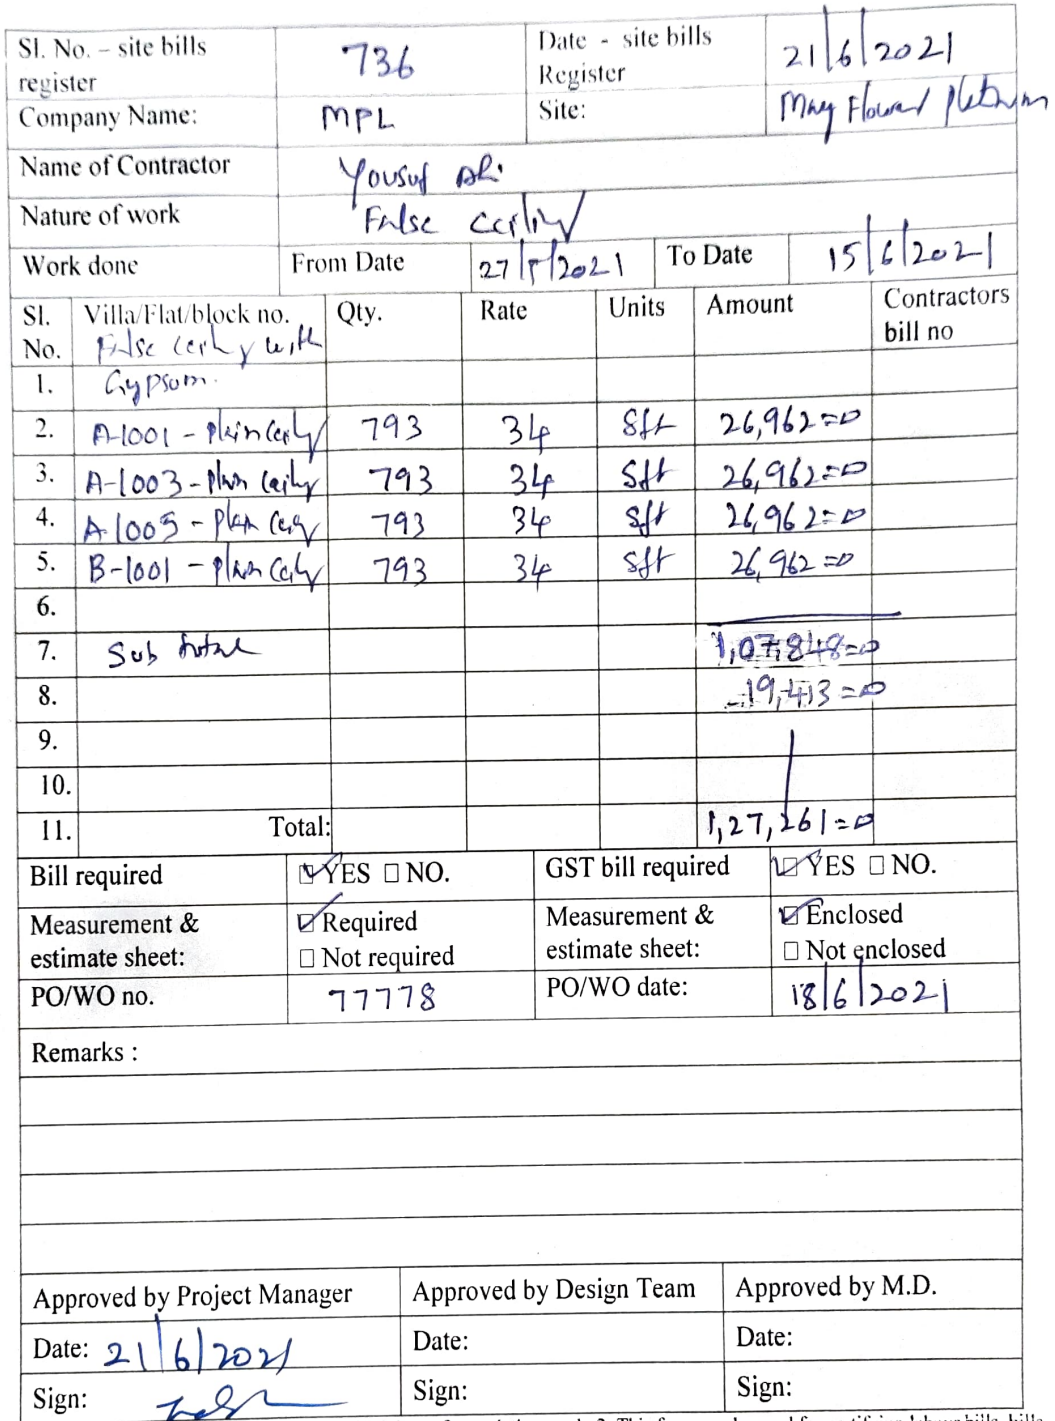 Sl. No. – site bills register 736 Date - site bills Register 21/6/2021
Company Name: MPL Site: May Flower Platinum
Name of Contractor Yousuf Ali
Nature of work False ceiling
Work done From Date 27/5/2021 To Date 15/6/2021
Sl. No. Villa/Flat/block no. Qty. Rate Units Amount Contractors bill no
False ceiling with
1. Gypsum.
2. A-1001 - Plain ceiling 793 34 Sft 26,962=0
3. A-1003 - Plain ceiling 793 34 Sft 26,962=0
4. A-1005 - Plain ceiling 793 34 Sft 26,962=0
5. B-1001 - Plain ceiling 793 34 Sft 26,962=0
6.
7. Sub total 1,07,848=0
8. 19,413=0
9.
10.
11. Total: 1,27,261=0
Bill required YES NO. GST bill required YES NO.
Measurement & estimate sheet: Required Not required Measurement & estimate sheet: Enclosed Not enclosed
PO/WO no. 77778 PO/WO date: 18/6/2021
Remarks :
Approved by Project Manager Approved by Design Team Approved by M.D.
Date: 21/6/2021 Date: Date:
Sign: Sign: Sign: